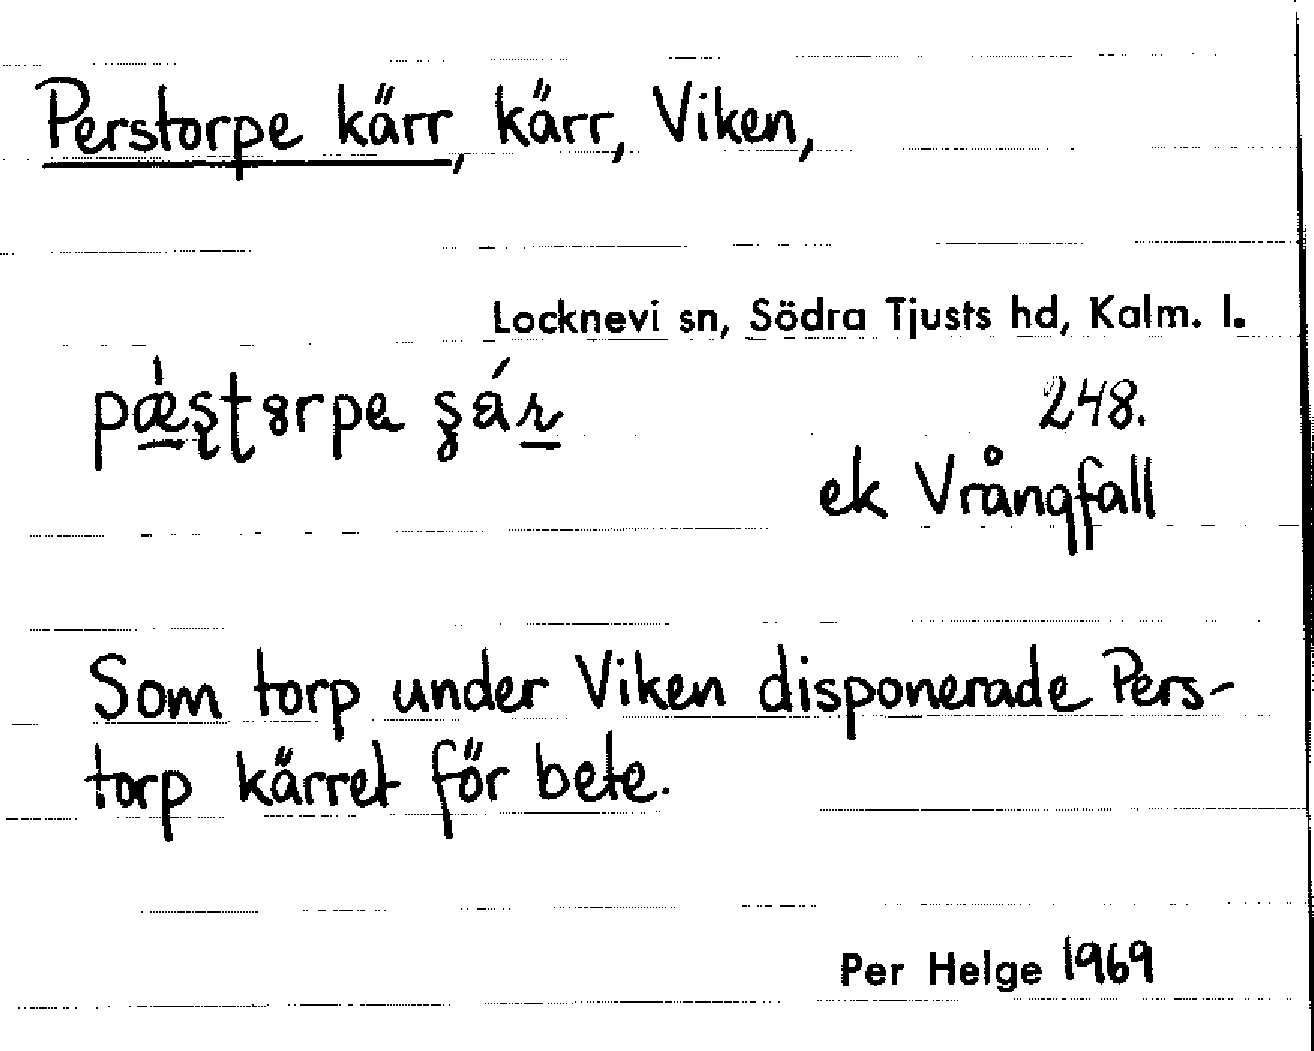 Perstorpe kärr, kärr, Viken,
Locknevi sn, Södra Tjusts hd, Kalm. l.
248.
ek Vrångfall
Som torp under Viken disponerade Pers-
torp kärret för bete.
Per Helge 1969